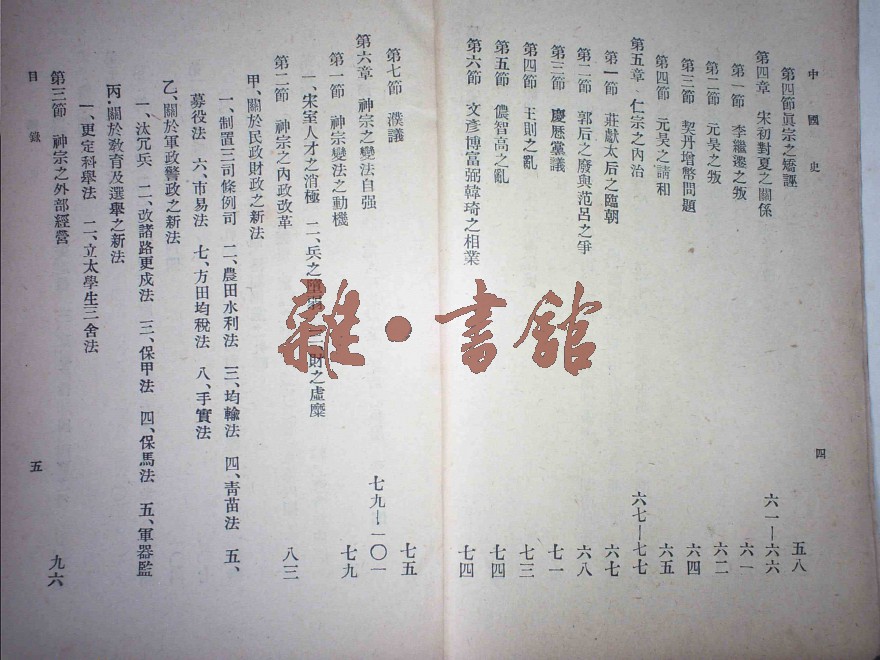 中國史
四
第四節眞宗之矯誣 五八
第四章 宋初對夏之關係 六一—六六
第一節 李繼遷之叛 六一
第二節 元昊之叛 六二
第三節 契丹增幣問題 六四
第四節 元昊之請和 六五
第五章 仁宗之內治 六七—七七
第一節 莊獻太后之臨朝 六七
第二節 郭后之廢與范呂之爭 六八
第三節 慶歷黨議 七一
第四節 王則之亂 七三
第五節 儂智高之亂 七四
第六節 文彥博富弼韓琦之相業 七四
第七節 濮議 七五
第六章 神宗之變法自强 七九—一〇一
第一節 神宗變法之動機 七九
一、宋室人才之消極 二、兵之 財之虛糜
第二節 神宗之內政改革 八三
甲、關於民政財政之新法
一、制置三司條例司 二、農田水利法 三、均輸法 四、靑苗法 五、
募役法 六、市易法 七、方田均稅法 八、手實法
乙、關於軍政警政之新法
一、汰冗兵 二、改諸路更戍法 三、保甲法 四、保馬法 五、軍器監
丙、關於敎育及選舉之新法
一、更定科舉法 二、立太學生三舍法
第三節 神宗之外部經營 九六
目錄
五
雜·書館